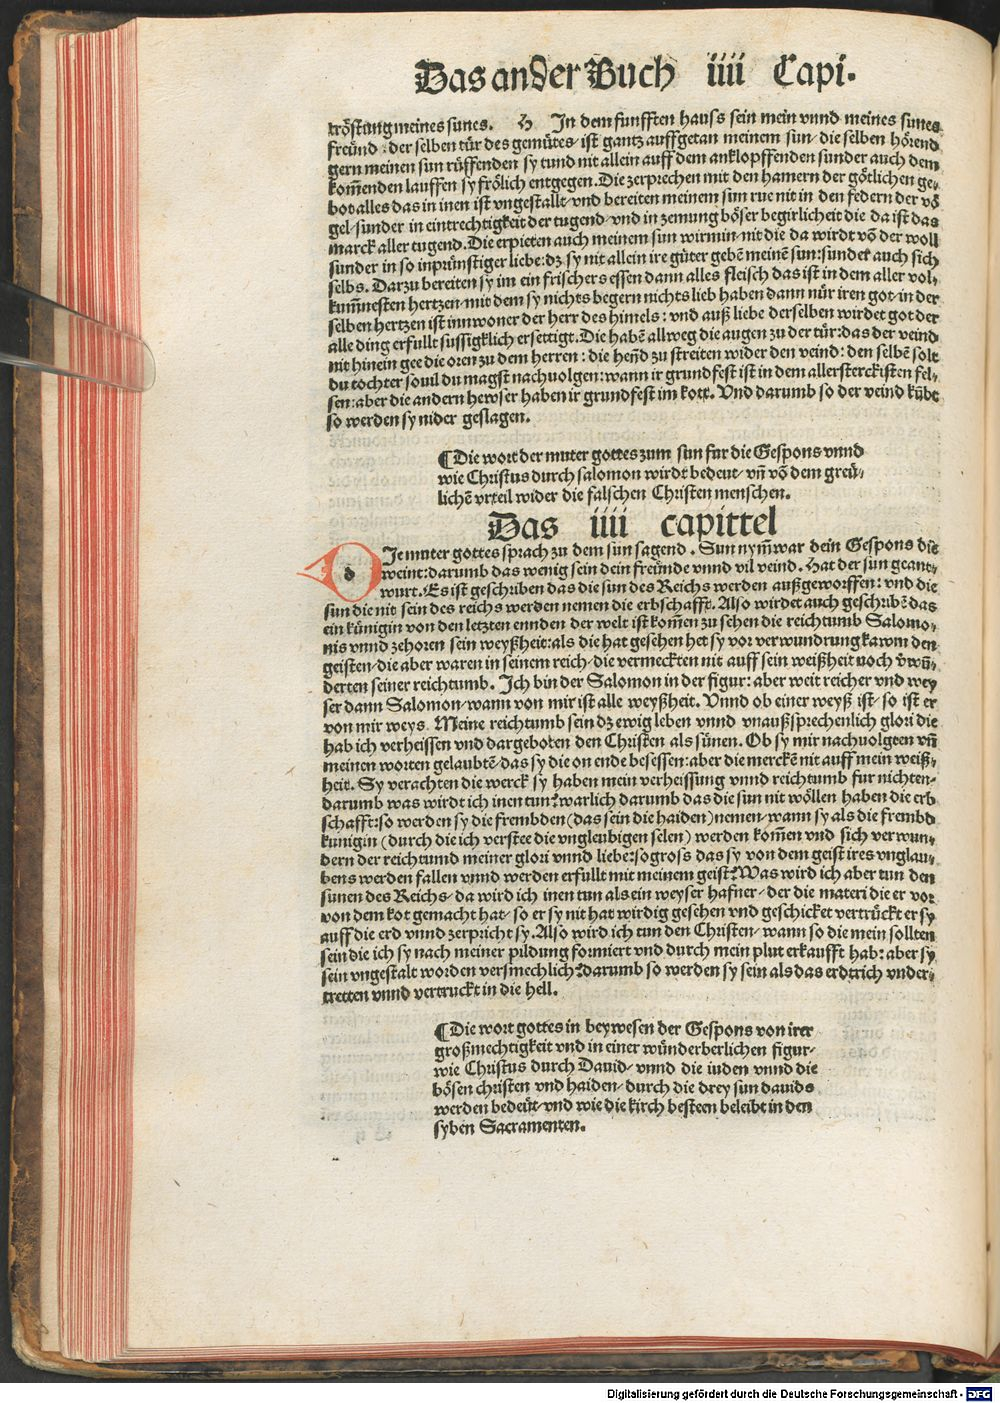 Das ander Buch iiii Capi.
tröstung meines sunes. H In dem funfften hauss sein mein vnnd meines sunes
freünd : der selben tür des gemütes ist gantz auffgetan meinem sun / die selben hörend
gern meinen sun rüffenden sy tund nit allein auff dem anklopffenden sunder auch dem
kom̄enden lauffen sy frölich entgegen. Die zerprechen mit den hamern der götlichen ge⸗
bot alles das in inen ist vngestallt / vnd bereiten meinem sun rue nit in den federn der vö
gel / sunder in eintrechtigkeit der tugend / vnd in zemung böser begirlicheit die da ist das
marck aller tugend. Die erpieten auch meinem sun wirmin / nit die da wirdt vō der woll
sunder in so inprünstiger liebe : dz sy nit allein ire güter gebē meinē sun : sunder auch sich
selbs. Darzu bereiten sy im ein frischers essen dann alles fleisch das ist in dem aller vol⸗
kum̄nesten hertzen / mit dem sy nichts begern nichts lieb haben dann nür iren got / in der
selben hertzen ist innwoner der herr des himels : vnd auß liebe derselben wirdet got der
alle ding erfullt sussigklich ersettigt. Die habē allweg die augen zu der tür : das der veind
nit hinein gee die oren zu dem herren : die hend̄ zu streiten wider den veind : den selbē solt
du tochter souil du magst nachuolgen : wann ir grundfest ist in dem allersterckisten fel⸗
sen : aber die andern hewser haben ir grundfest im kott. Vnd darumb so der veind kūbt
so werden sy nider geslagen.
¶ Die wort der muter gottes zum sun fur die Gespons vnnd
wie Christus durch salomon wirdt bedeut / vn̄ vō dem greü⸗
lichē vrteil wider die falschen Christen menschen.
Das iiii capittel
d Je muter gottes sprach zu dem sun sagend. Sun nym̄ war dein Gespons die
weint : darumb das wenig sein dein freünde vnnd vil veind. Hat der sun geant⸗
wurt. Es ist geschriben das die sun des Reichs werden außgeworffen : vnd die
sun die nit sein des reichs werden nemen die erbschafft. Also wirdet auch geschribē das
ein künigin von den letzten ennden der welt ist kom̄en zu sehen die reichtumb Salomo⸗
nis vnnd zehoren sein weyßheit : als die hat gesehen het sy vor verwundrung kawm den
geisten / die aber waren in seinem reich / die vermeckten nit auff sein weißheit noch v̄wū⸗
derten seiner reichtumb. Ich bin der Salomon in der figur : aber weit reicher vnd wey
ser dann Salomon / wann von mir ist alle weyßheit. Vnnd ob einer weyß ist / so ist er
von mir weys. Meine reichtumb sein dz ewig leben vnnd vnaußsprechenlich glori die
hab ich verheissen vnd dargeboten den Christen als sünen. Ob sy mir nachuolgten vn̄
meinen worten gelaubtē / das sy die on ende besessen : aber die merckē nit auff mein weiß⸗
heit. Sy verachten die werck sy haben mein verheissung vnnd reichtumb fur nichten /
darumb was wirdt ich inen tun? warlich darumb das die sun nit wöllen haben die erb
schafft : so werden sy die frembden (das sein die haiden) nemen / wann sy als die frembd
kunigin (durch die ich verstee die vngleubigen selen) werden kom̄en vnd sich verwun⸗
dern der reichtumb meiner glori vnnd liebe : so gross das sy von dem geist ires vnglau⸗
bens werden fallen vnnd werden erfullt mit meinem geist? Was wird ich aber tun den
sunen des Reichs / da wird ich inen tun als ein weyser hafner / der die materi die er vor
von dem kot gemacht hat / so er sy nit hat wirdig gesehen vnd geschicket vertrückt er sy
auff die erd vnnd zerpricht sy. Also wird ich tun den Christen / wann so die mein sollten
sein die ich sy nach meiner pildung formiert vnd durch mein plut erkaufft hab : aber sy
sein vngestalt worden versmechlich? darumb so werden sy sein als das erdtrich vnder⸗
tretten vnnd vertruckt in die hell.
¶ Die wort gottes in beywesen der Gespons von irer
großmechtigkeit vnd in einer wünderberlichen figur /
wie Christus durch Dauid / vnnd die iuden vnnd die
bösen christen vnd haiden / durch die drey sun dauids
werden bedeüt / vnd wie die kirch besteen beleibt in den
syben Sacramenten.
Digitalisierung gefördert durch die Deutsche Forschungsgemeinschaft - DFG